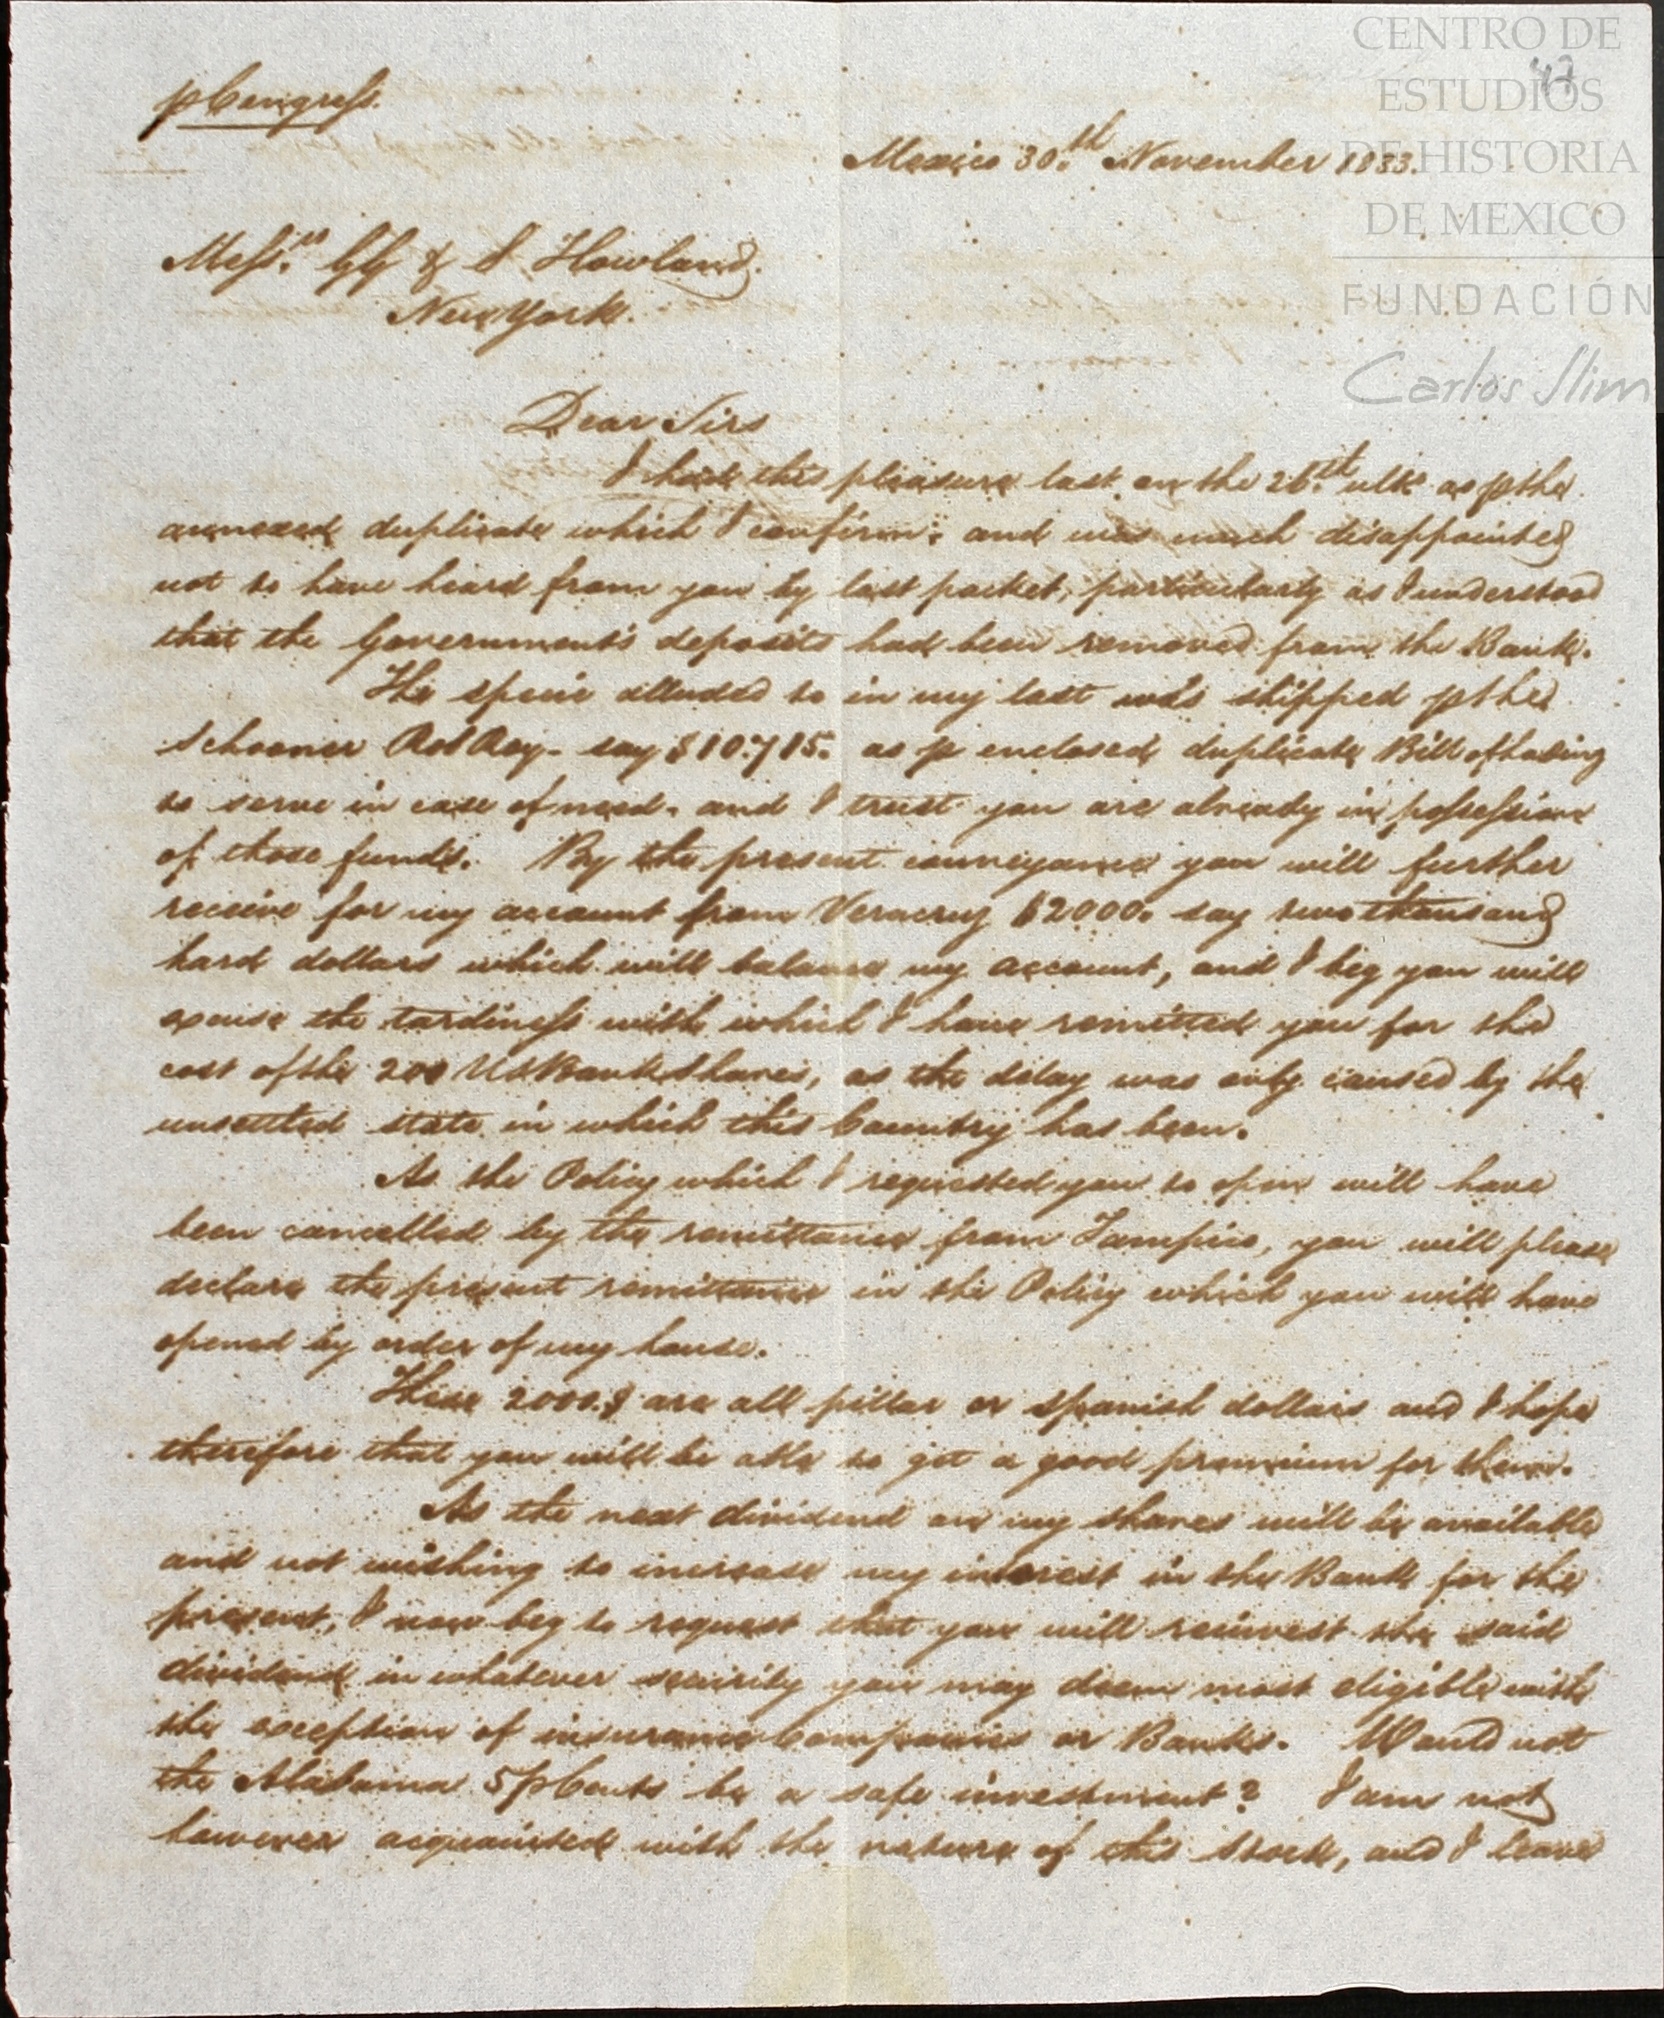 CENTRO DE
ESTUDIOS
DE HISTORIA
DE MEXICO
FUNDACIÓN
Carlos Slim
p Congress.
Mexico 30.th November 1833.
Mess.rs GG & S Howland.
New York.
Dear Sirs
I had this pleasure last on the 26.th ulto as p the
annexed duplicate which I confirm; and was much disappointed
not to have heard from you by last packet, particularly as I understood
that the Government's deposits had been removed from the Bank.
The specie alluded to in my last was shipped p the
Schooner Rob Roy - say $10.715. as p enclosed duplicate Bill of lading
to serve in case of need. and I trust you are already in possession
of those funds. By the present conveyance you will further
receive for my account from Veracruz $2000. say two thousand
hard dollars which will balance my account, and I beg you will
excuse the tardiness with which I have remitted you for the
cost of the 200 US Bank Shares, as the delay was only caused by the
unsettled state in which this Country has been.
As the Policy which I requested you to open will have
been cancelled by the remittance from Tampico, you will please
declare the present remittance in the Policy which you will have
opened by order of my house.
These 2000.$ are all pillar or Spanish dollars and I hope
therefore that you will be able to get a good premium for them.
As the next dividend on my shares will be available
and not wishing to increase my interest in the Bank for the
present, I now beg to request that you will reinvest the said
dividend in whatever security you may deem most eligible with
the exception of insurance Companies or Banks. Would not
the Alabama 5 p Cents be a safe investment? I am not
however acquainted with the nature of this Stock, and I leave